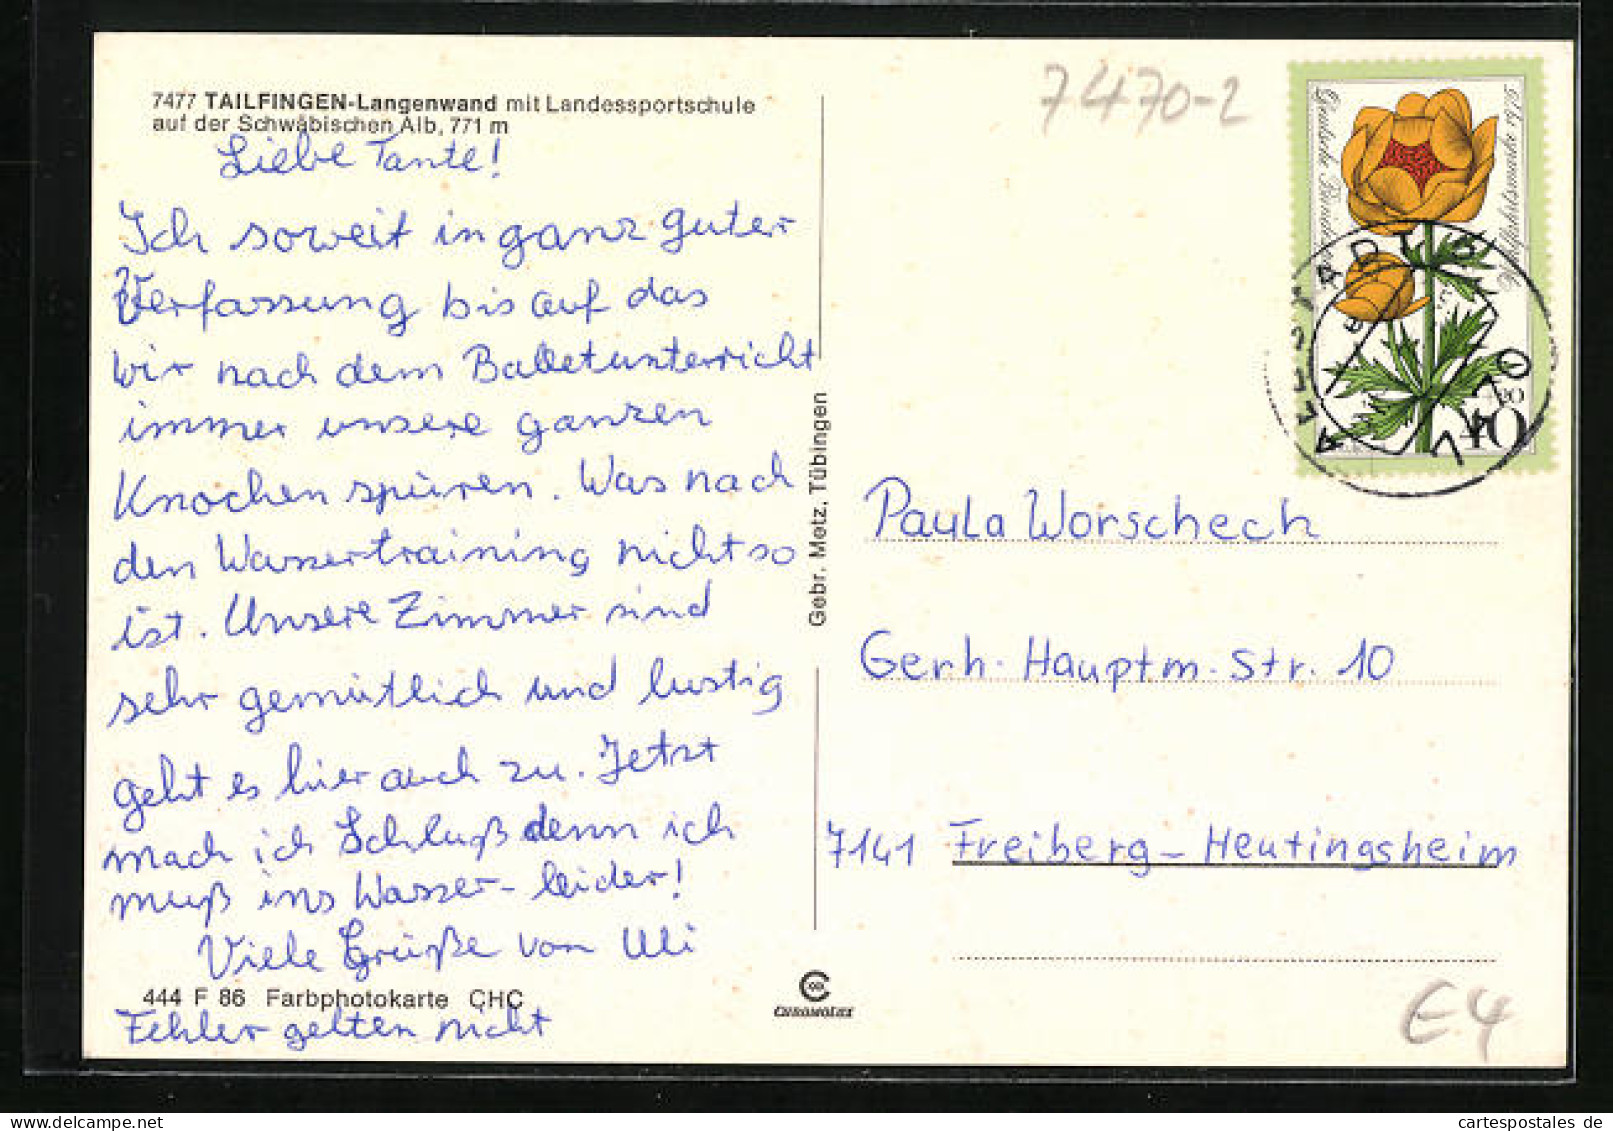 7477 TAILFINGEN-Langenwand mit Landessportschule
auf der Schwäbischen Alb, 771 m
Liebe Tante!
Ich soweit in ganz guter
Verfassung bis auf das
wir nach dem Balletunterricht
immer unsere ganzen
Knochen spüren. Was nach
den Wassertraining nicht so
ist. Unsere Zimmer sind
sehr gemütlich und lustig
geht es hier auch zu. Jetzt
mach ich Schluß denn ich
muß ins Wasser - leider!
Viele Grüße von Uli
444 F 86 Farbphotokarte CHC
Fehler gelten nicht
Gebr. Metz, Tübingen
CHROMOLUX
7470-2
Deutsche Bundespost
Wohlfahrtsmarke 1975
40
+20
ALBSTADT
7470
Paula Worschech
Gerh. Hauptm. Str. 10
7141 Freiberg - Heutingsheim
E4
cartespostales de